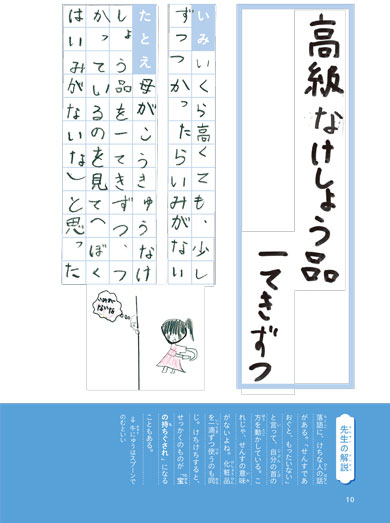 高級なけしょう品
一てきずつ
いみ いくら高くても、少し
ずつつかったらいみがない
たとえ 母がこうきゅうなけ
しょう品を一てきずつ、つ
かっているのを見て〈ぼく
はいみがないな〉と思った
いみが
ないな
先生の解説
落語に、けちな人の話
がある。「せんすであ
おぐと、もったいない」
と言って、自分の首の
方を動かしている。こ
れじゃ、せんすの意味
がないよね。化粧品
を一滴ずつ使うのも同
じ。けちけちすると、
せっかくのものが「宝
の持ちぐされ」になる
こともある。
⇓牛にゅうはスプーンで
のむといい
10